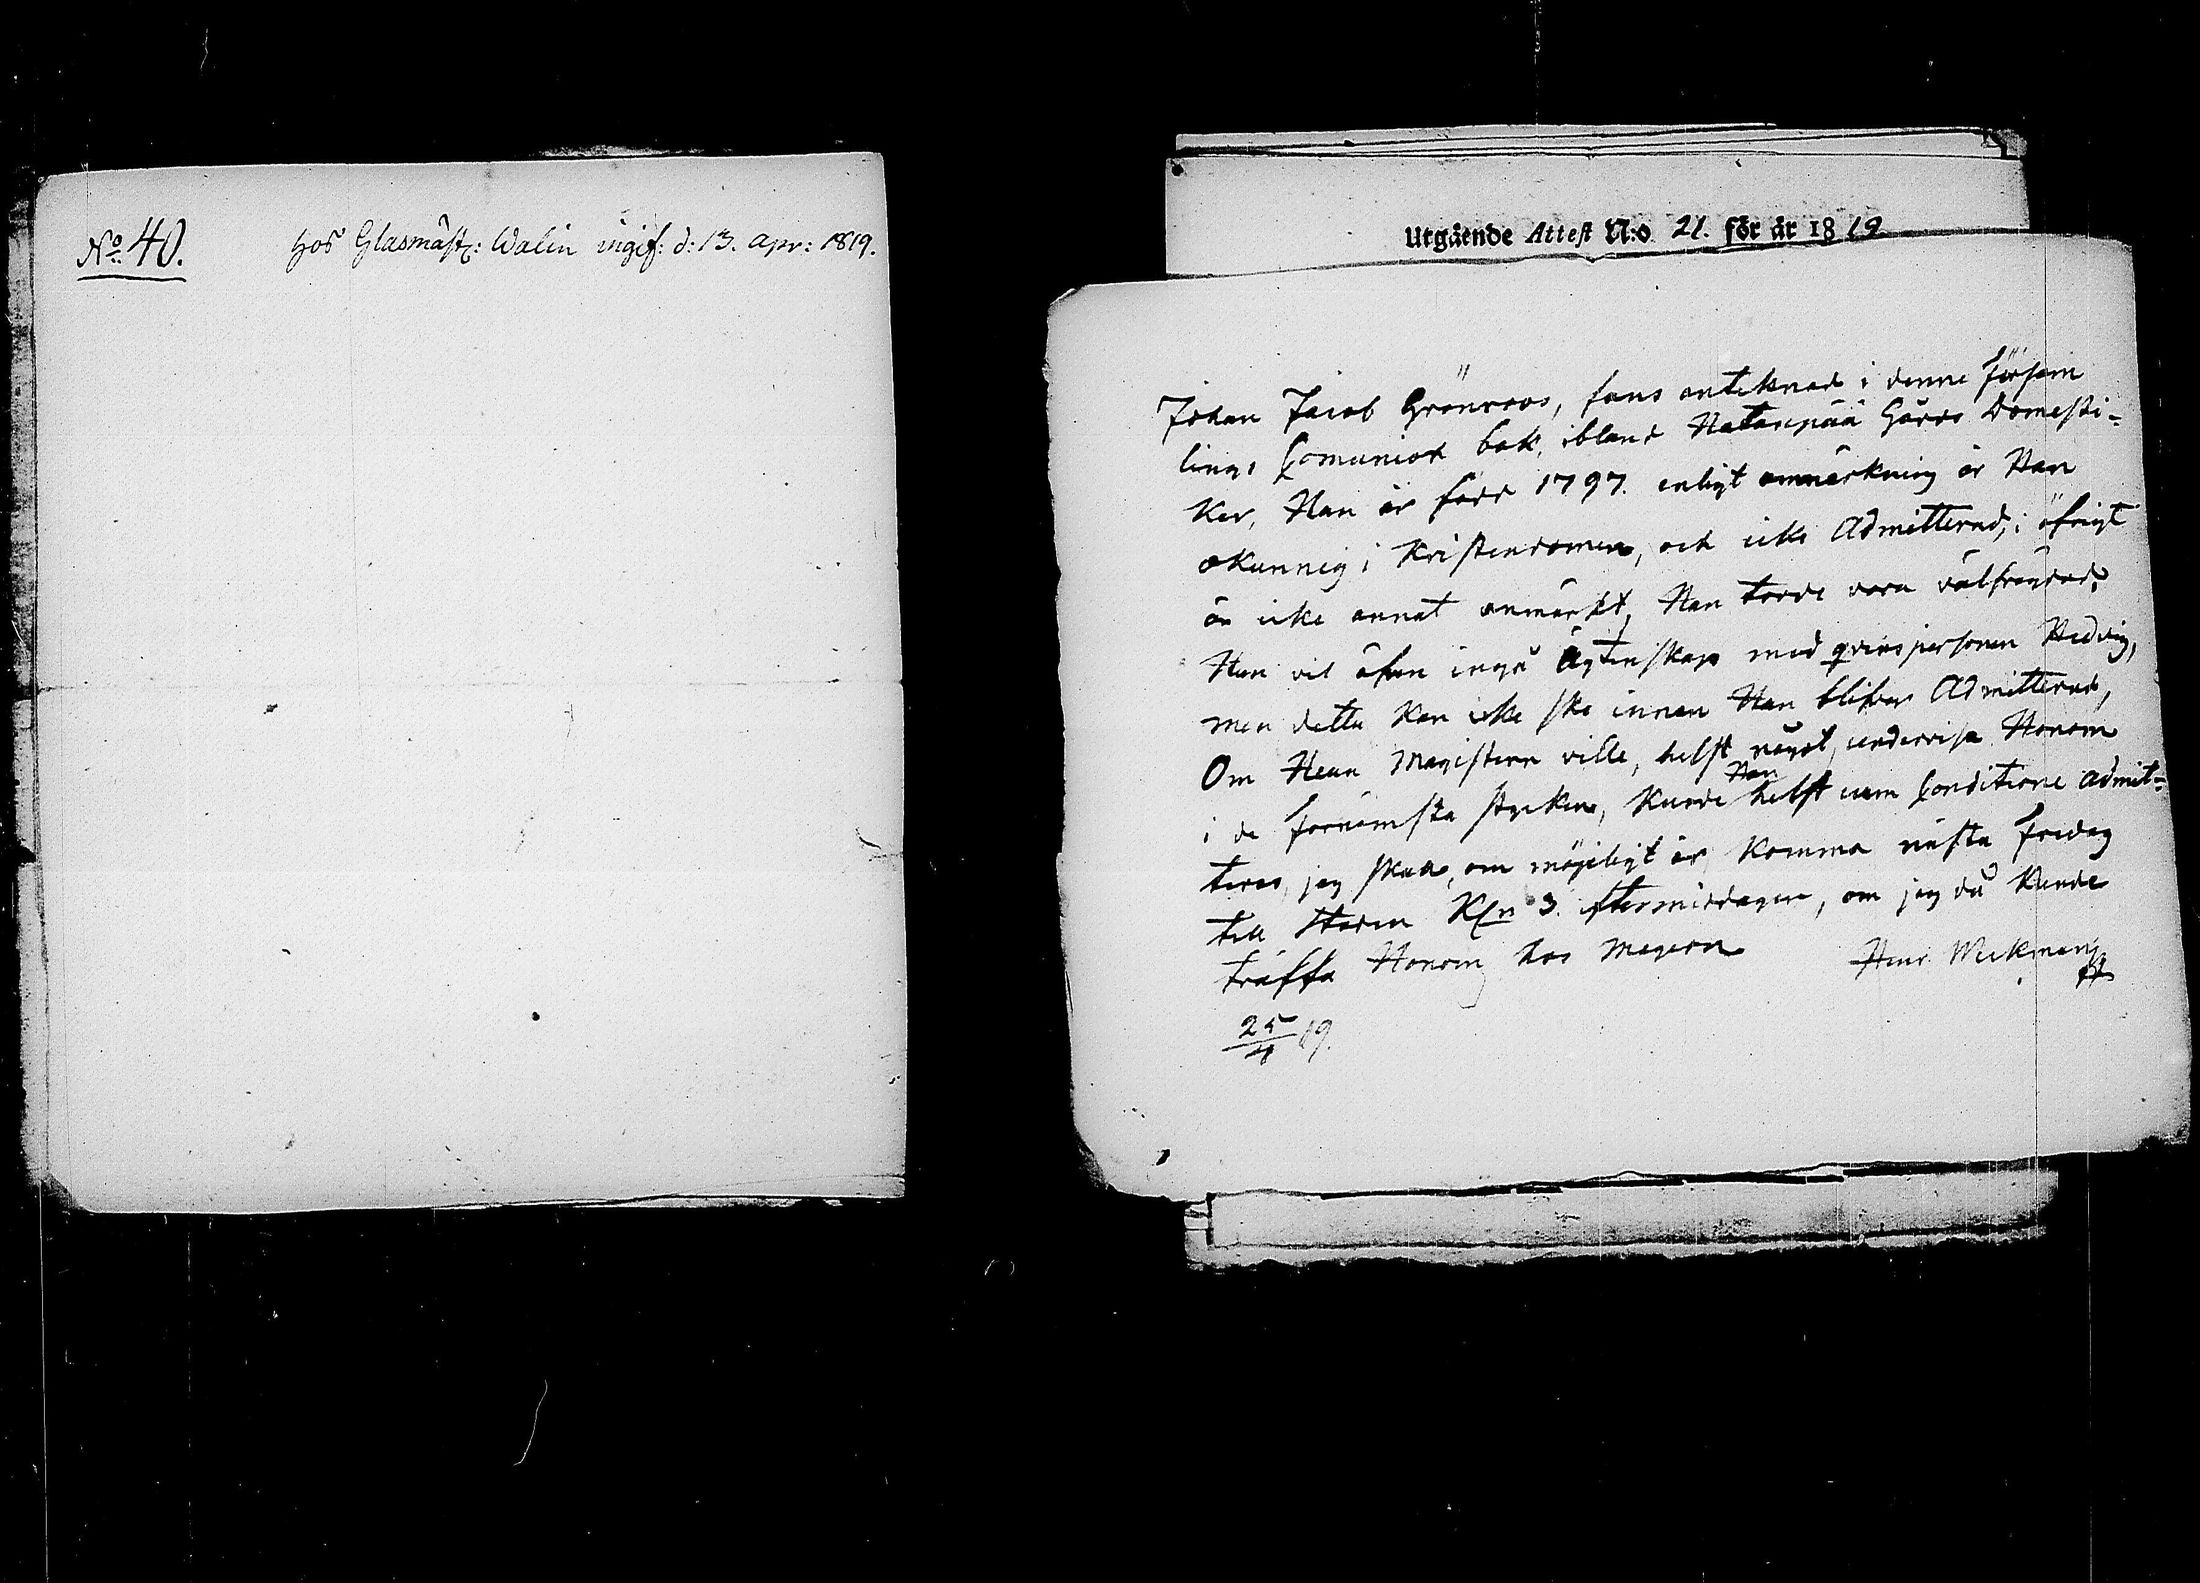 No 40.
hos Glasmäst: Walin ingif: d: 13. apr: 1819.
Utgående Attest N:o 21. för år 1819
Johan Jacob Grönroos, fans anteknad i denne försam
lings Comunion bok, ibland Hatanpää Gårds Domesti-
ker, Han är född 1797. enligt anmärkning är Han
okunnig i Kristendomen, och icke Admitterad, i öfrigt
är icke annat anmärkt, Han torde vara välfrägdad,
Han vil äfven ingå Ägtenskap med qvinspersonen Hedvig,
men detta kan icke ske innan Han blifver Admitterad,
Om Herr Magistern ville, helst något, underrisa Honom
i de förnämsta styken, kunde Han helst cum Conditione admit-
teras, jag skall, om möjeligt är, komma nästa fredag
till staden Kln 3. eftermiddagen, om jag då kunde
träffa Honom hos Magern
Henr Weckman
25/4 19.